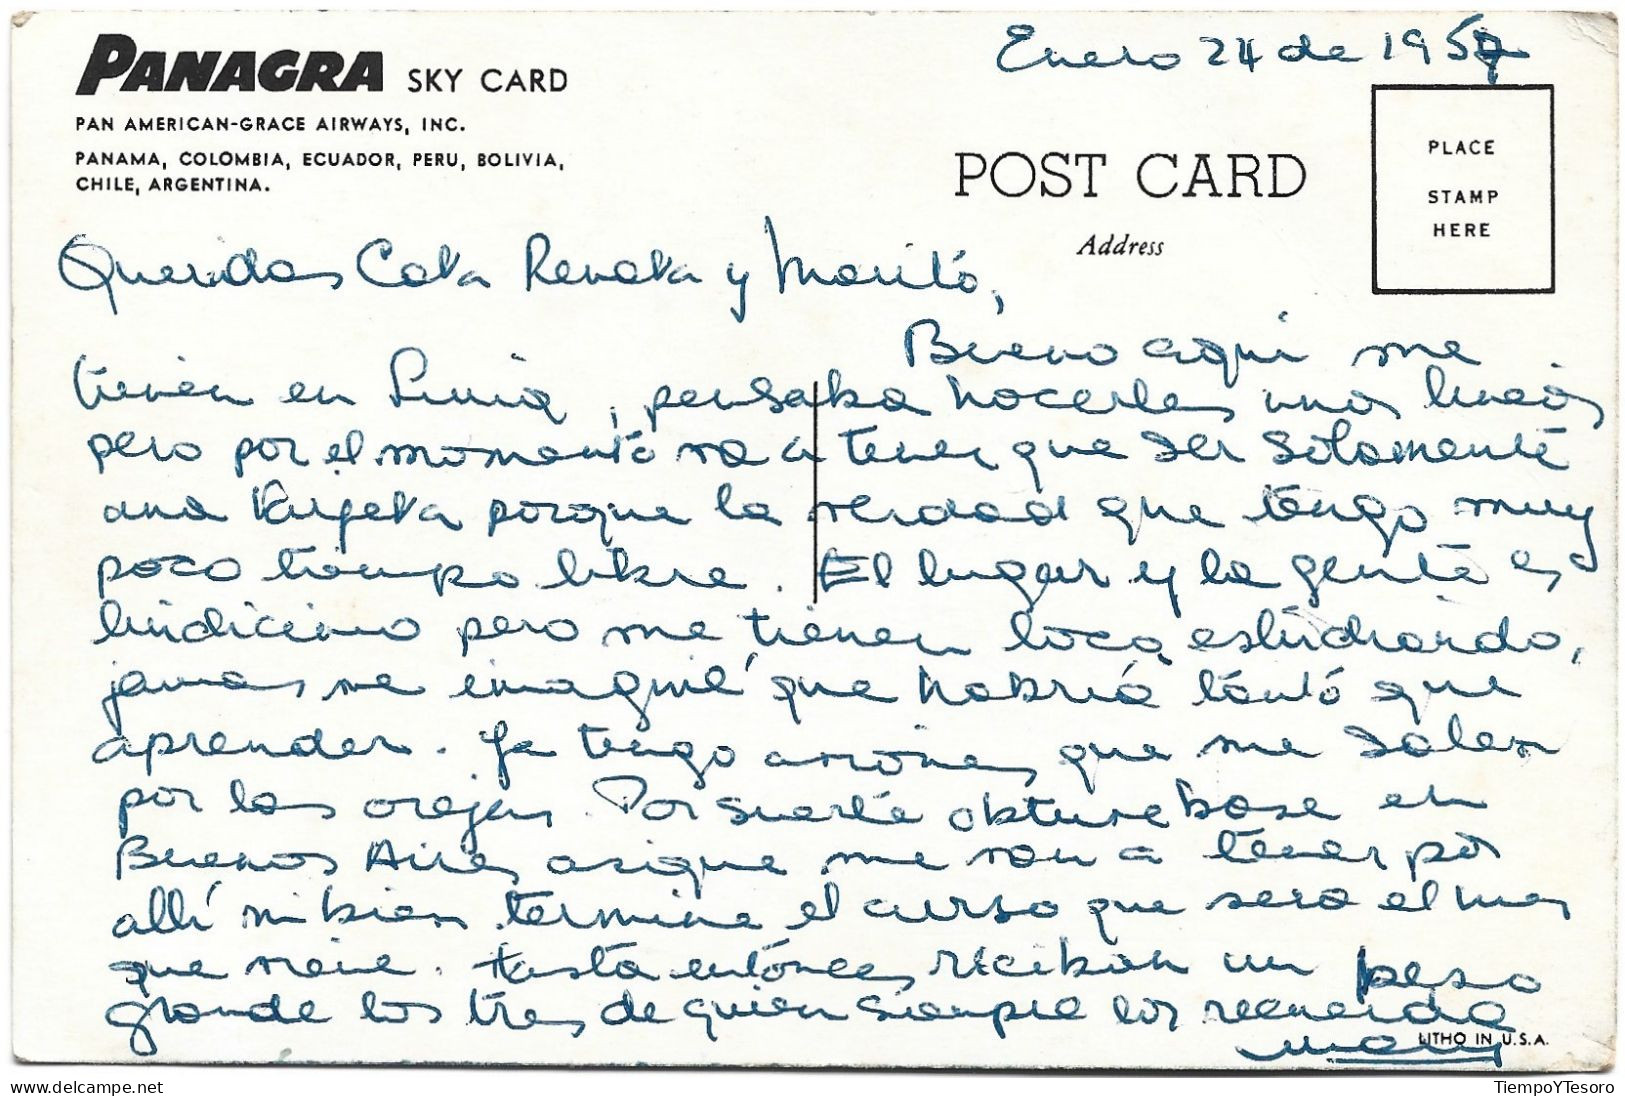 PANAGRA SKY CARD
PAN AMERICAN-GRACE AIRWAYS, INC.
PANAMA, COLOMBIA, ECUADOR, PERU, BOLIVIA,
CHILE, ARGENTINA.
Enero 24 de 1957
POST CARD
Address
PLACE
STAMP
HERE
Queridas Cota Renata y Marító,
Bueno aquí me
tienen en Lima, pensaba hacerles unas lineas
pero por el momento va a tener que ser solamente
una tarjeta porque la verdad que tengo muy
poco tiempo libre. El lugar y la gente es
lindicimo pero me tienen loca estudiando,
jamas me imaginé que habría tanto que
aprender. Ya tengo aviones que me salen
por las orejas. Por suerte obtuve base en
Buenos Aires asique me van a tener por
allí ni bien termine el curso que sera el mes
que viene. Hasta entonces reciban un beso
grande las tres de quien siempre los recuerda
Mary
LITHO IN U.S.A.
TiempoYTesoro
delcampe.net